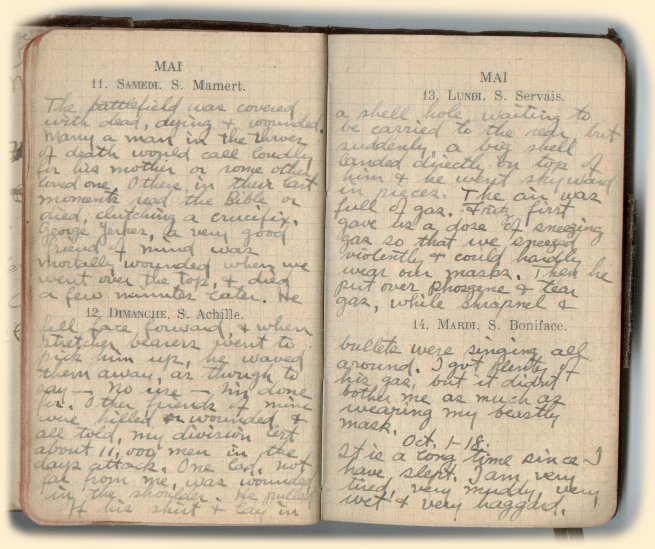 MAI
11. SAMEDI. S. Mamert.
The battlefield was covered
with dead, dying & wounded.
Many a man in the throes
of death would call loudly,
for his mother or some other
loved one. Others in their last
moments read the Bible or
died, clutching a crucifix.
George Yerkes, a very good
friend of mind was
mortally wounded when we
went over the top, & died
a few minutes later. He
12. DIMANCHE, S. Achille.
fell face forward, & when
stretcher bearers went to
pick him up, he waved
them away, as though to
say - No use - I'm done
for. Other friends of mine
were killed or wounded &
all told, my division lost
about 11,000 men in the
days attack. One lad, not
far from me, was wounded
in the shoulder. He pulled
off his shirt & lay in
MAI
13. LUNDI. S. Servais.
a shell hole waiting to
be carried to the rear, but
suddenly a big shell
landed directly on top of
him & he went skyward
in pieces. The air was
full of gas. Fritz first
gave us a dose of sneezing
gas so that we sneezed
violently & could hardly
wear our masks. Then he
put over phosgene & tear
gas, while shrapnel &
14. MARDI. S. Boniface.
bullets were singing all
around. I got plenty of
his gas, but it didn't
bother me as much as
wearing my beastly
mask.
Oct. 1-18.
It is a long time since I
have slept. I am very
tired, very muddy, very
wet & very haggard.